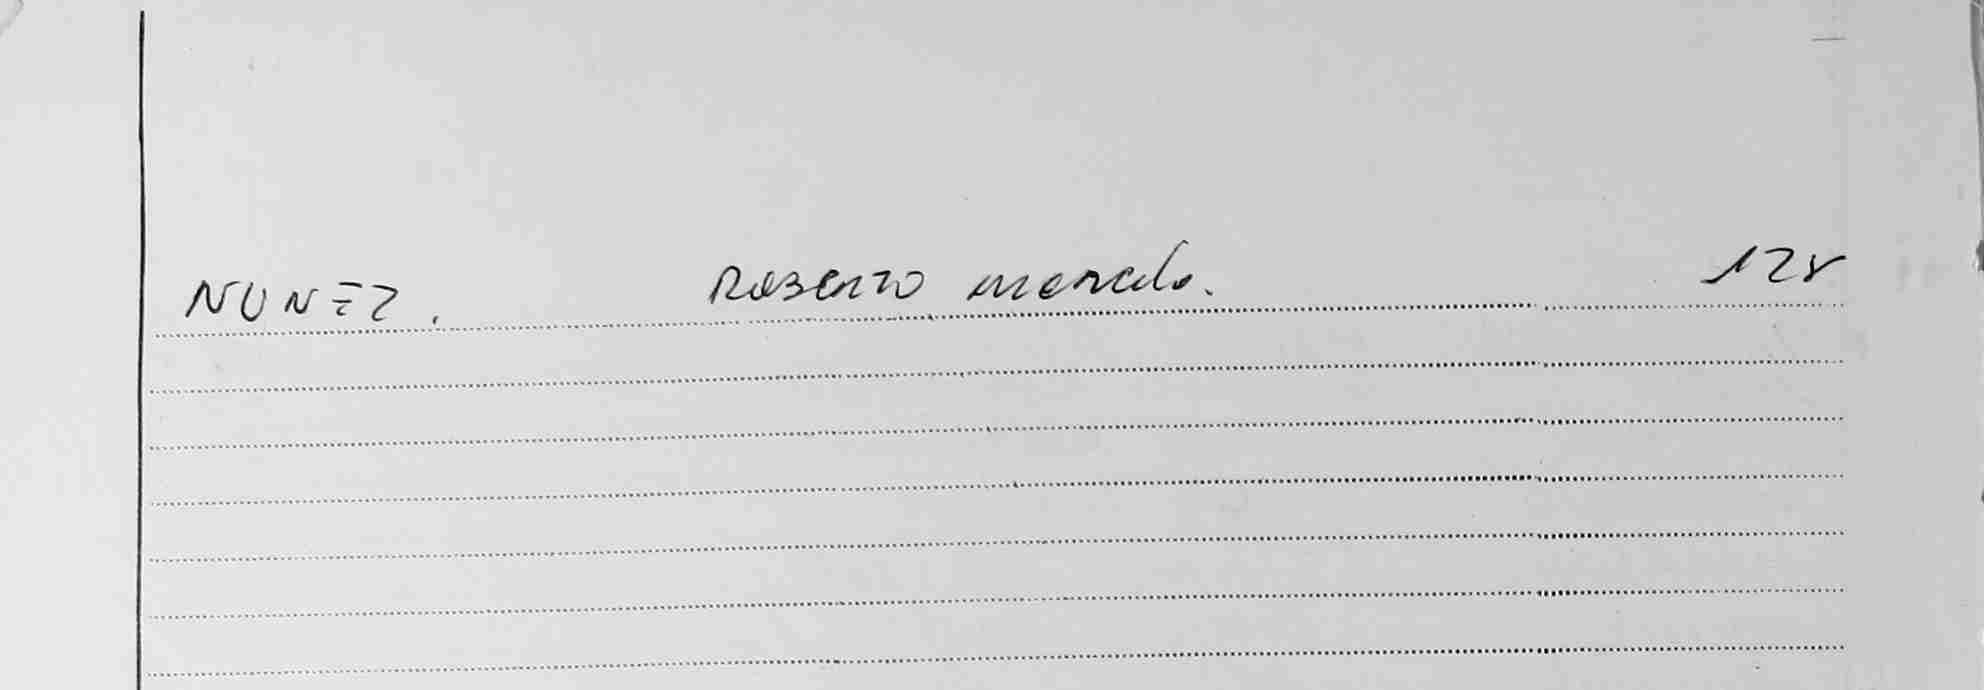 NUNEZ. Roberto Marcelo. 128